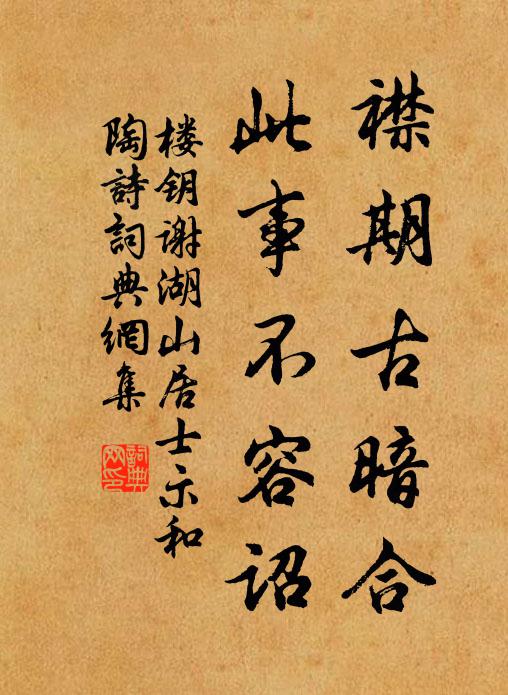 襟期古暗合
此事不容诏
楼钥谢湖山居士示和
陶詩詞典網集
詞典
网印